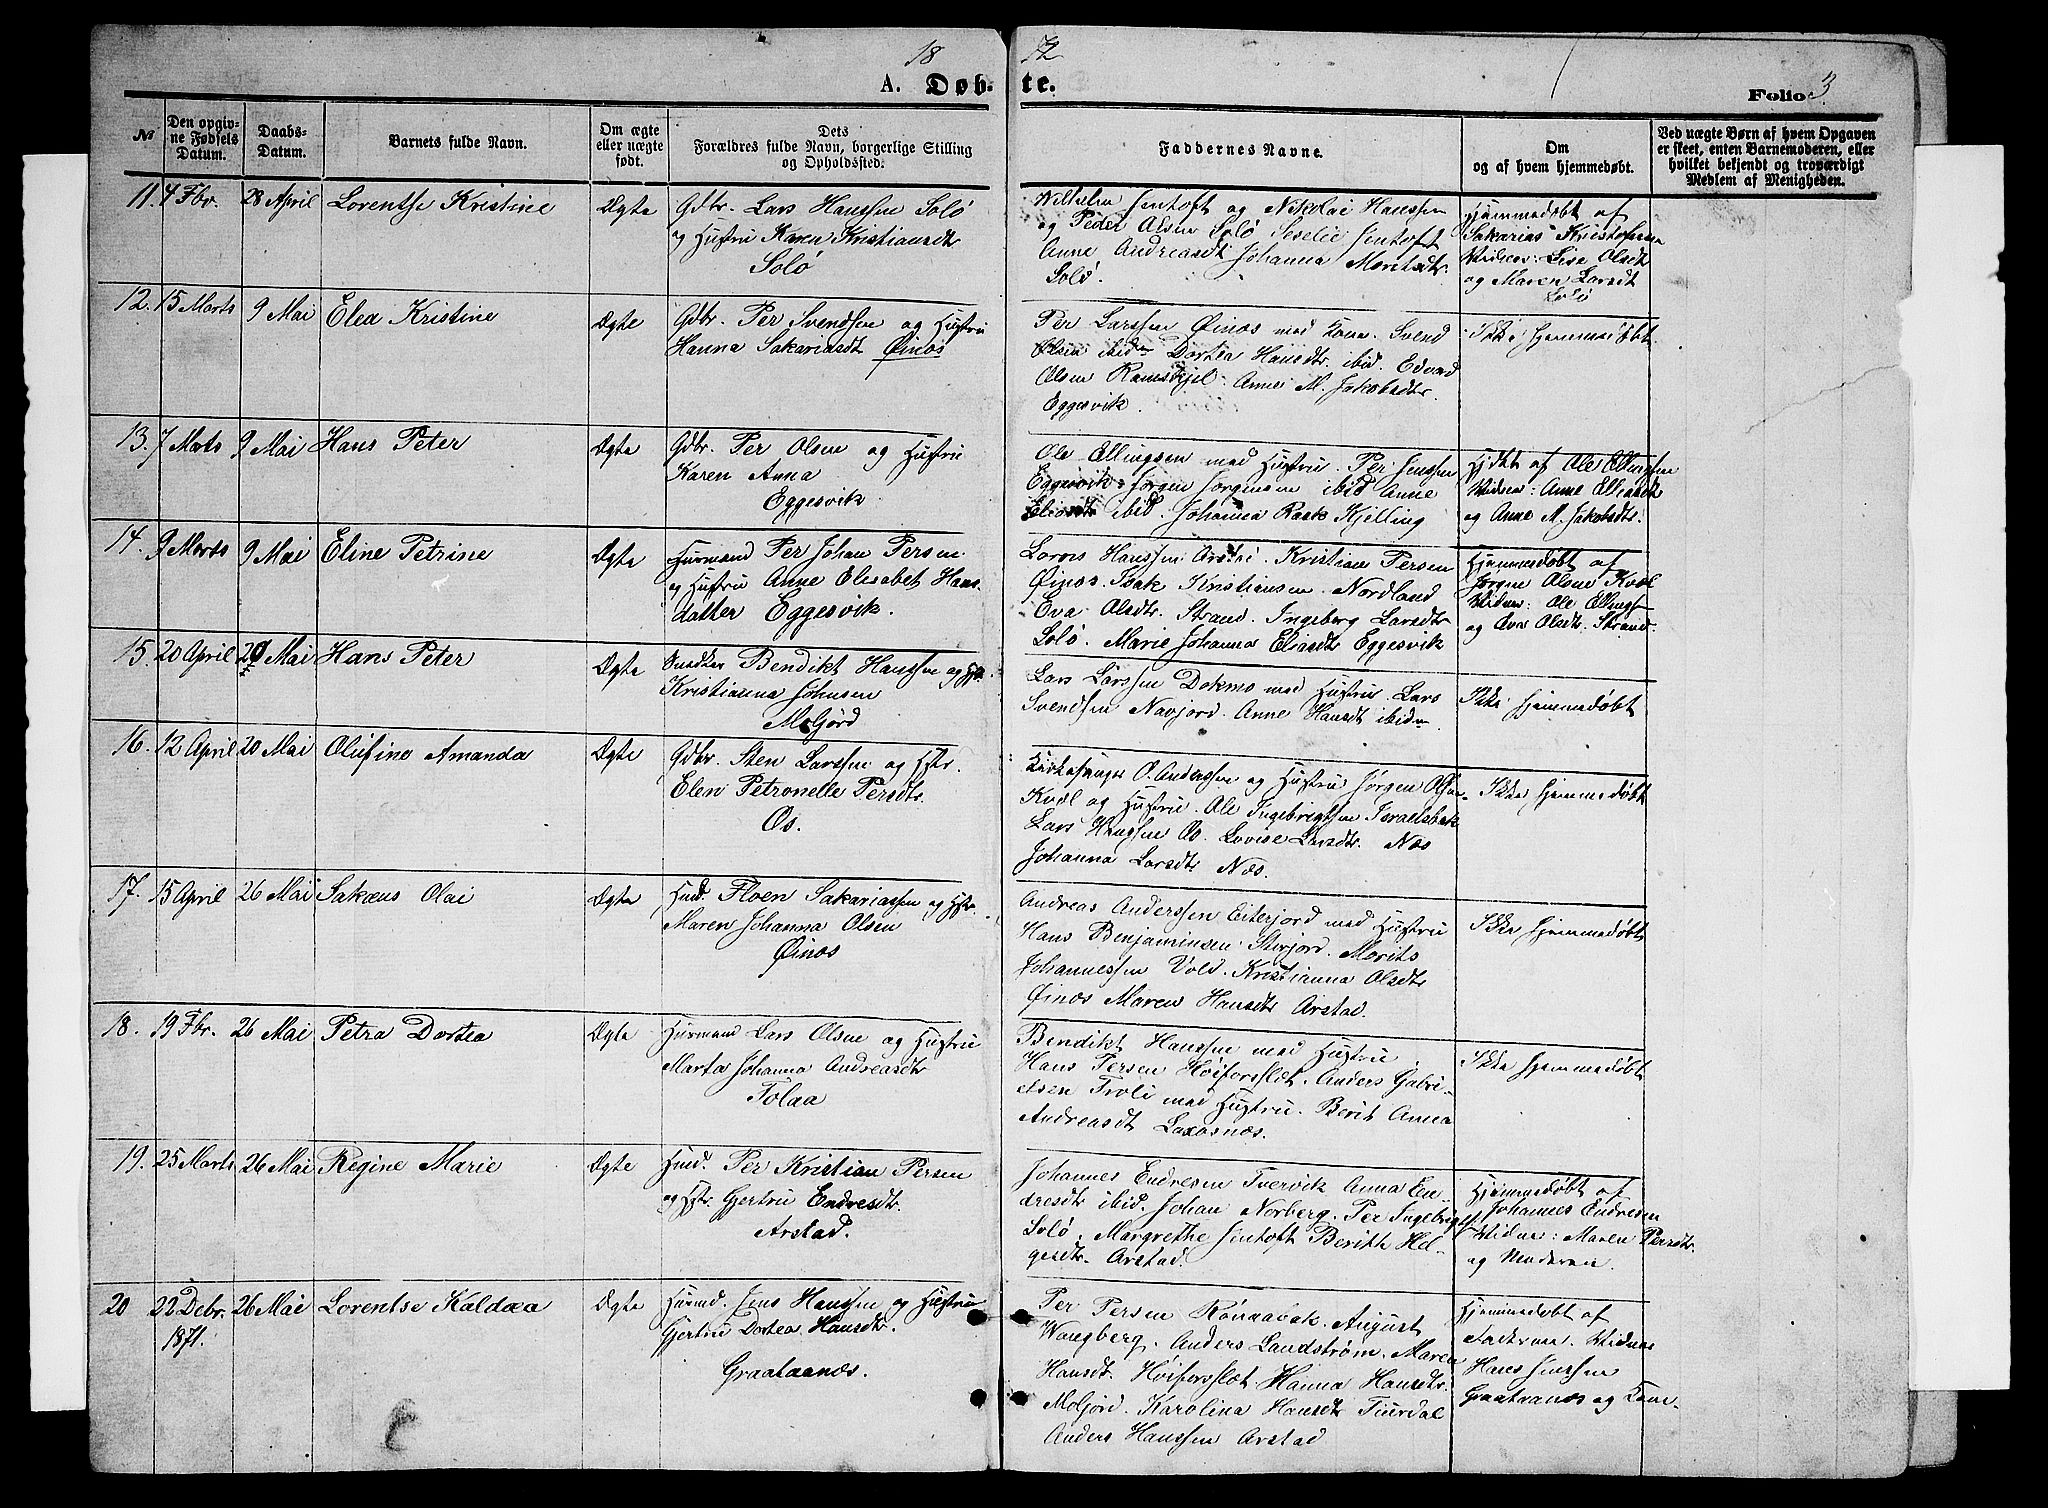 18 72
A. Døb- te.
Folio 3
№
Den opgiv-
ne Fødsels
Datum.
Daabs-
Datum.
Barnets fulde Navn.
Om ægte
eller uægte
født.
Dets
Forældres fulde Navn, borgerlige Stilling
og Opholdssted.
Faddernes Navne.
Om
og af hvem hjemmedøbt.
Ved uægte Børn af hvem Opgaven
er skeet, enten Barnemoderen, eller
hvilket bekjendt og troværdigt
Medlem af Menigheden.
11. 4 Fbr. 28 April Lorentse Kristine Ægte Gdbr. Lars Hanssen Solö
og Hustru Karen Kristiansdtr
Solö
Wilhelm Jentoft og Nikolai Hanssen
og Peder Olsen Solö Seselie Jentoft
Anne Andreasdt Johanna Moritsdtr
Solö.
Hjemmedøbt af
Sakarias Kristofersen
Vidner: Lise Olsdt
og Maren Larsdt
Solö
12. 15 Marts 9 Mai Elea Kristine Ægte Gdbr. Per Svendsen og Hustru
Hanna Sakariasdt Øinos
Per Larssen Øinos med Kone. Svend
Olsen ibidm Dortea Hansdtr ibid. Edvard
Olsen Ramskjel. Anne M. Jakobsdtr.
Eggesvik.
Ikke hjemmedøbt.
13. 7 Marts 9 Mai Hans Peter Ægte Gdbr. Per Olsen og Hustru
Karen Anna
Eggesvik
Ole Ellingsen med Hustru. Per Jenssen
Eggesvik Jörgen Jörgensen ibid Anne
Eliasdtr ibid. Johanna Rask Kjelling
Hjdbt af Ole Ellingsen
Vidner: Anne Eliasdtr
og Anne M. Jakobsdtr.
14. 9 Marts 9 Mai Eline Petrine Ægte Husmand Per Johan Persen
og Hustru Anne Elisabet Hans
datter Eggesvik.
Lorns Hanssen Arstad. Kristian Persen
Øinos. Isak Kristiansen. Nordland
Eva Olsdtr. Strand. Ingeberg Larsdtr
Solö. Marie Johanna Eliasdtr Eggesvik
Hjemmedøbt af
Jörgen Olsen Kvæl
Vidner: Ole Ellings-
og Eva Olsdtr. Strand.
15. 20 April 20 Mai Hans Peter Ægte Snedker Bendikt Hanssen og Hstr.
Kristianna Johnsen
Moljörd
Lars Larssen Dokmo med Hustru. Lars
Svendsen Navjord. Anne Hansdt ibidm
Ikke hjemmedøbt
16. 12 April 20 Mai Olufine Amanda Ægte Gdbr. Sten Larssen og Hstr.
Elen Petronelle Persdtr.
Os.
Kirkesanger O. Anderssen og Hustru Jörgen Olsen
Kvæl og Hustru. Ole Ingebrigtsen Israelsbak
Lars Hanssen Os. Lovise Larsdtr. Næs
Johanna Larsdtr Næs.
Ikke hjemmedøbt
17. 15 April 26 Mai Sakæus Olai Ægte Hmd. Floen Sakariassen og Hstr.
Maren Johanna Olsen
Øinos
Andreas Anderssen Eiterjord med Hustru
Hans Benjaminsen Storjord. Morits
Johannessen Vold. Kristianna Olsdtr
Øinos Maren Hansdtr Arstad.
Ikke hjemmedøbt
18. 19 Fbr. 26 Mai Petra Dortea Ægte Husmand Lars Olsen og Hustru
Marta Johanna Andreasdtr
Tolaa
Bendikt Hanssen med Hustru
Hans Persen Høiforsslet. Anders Gabri-
elsen Troli med Hustru. Berit Anna
Andreasdt Laxosnæs.
Ikke hjemmedøbt
19. 25 Marts 26 Mai Regine Marie Ægte Hmd. Per Kristian Persen
og Hstr. Gjertru Endresdtr.
Arstad.
Johannes Endresen Tvervik Anna En-
dresdtr ibid. Johan Norberg. Per Ingebrigts.
Solö. Margrethe Jentoft Berithe Hel-
gesdtr. Arstad.
Hjemmedøbt af
Johannes Endresen
Vidner: Maren Persdtr.
og Moderen
20 22 Debr. 26 Mai Lorentse Kaldæa Ægte Husmd. Jens Hanssen og Hustru
1871. Gjertru Dortea Hansdtr.
Graataanæs.
Per Persen Rönnabak. August
Wangberg. Anders Landström. Maren
Hansdt. Höiforsslet Hanna Hansdtr.
Moljord. Karolina Hansdtr
Anders Hanssen Arstad
Hjemmedøbt af
Faderen. Vidner
Hans Jenssen
Graataanæs og Kone